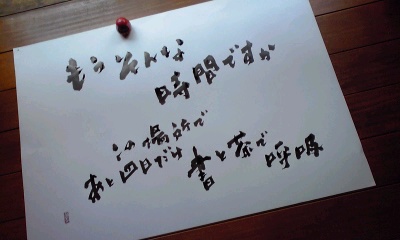 もうそんな
時間ですか
この場所で
あと四日だけ
書と茶で呼吸